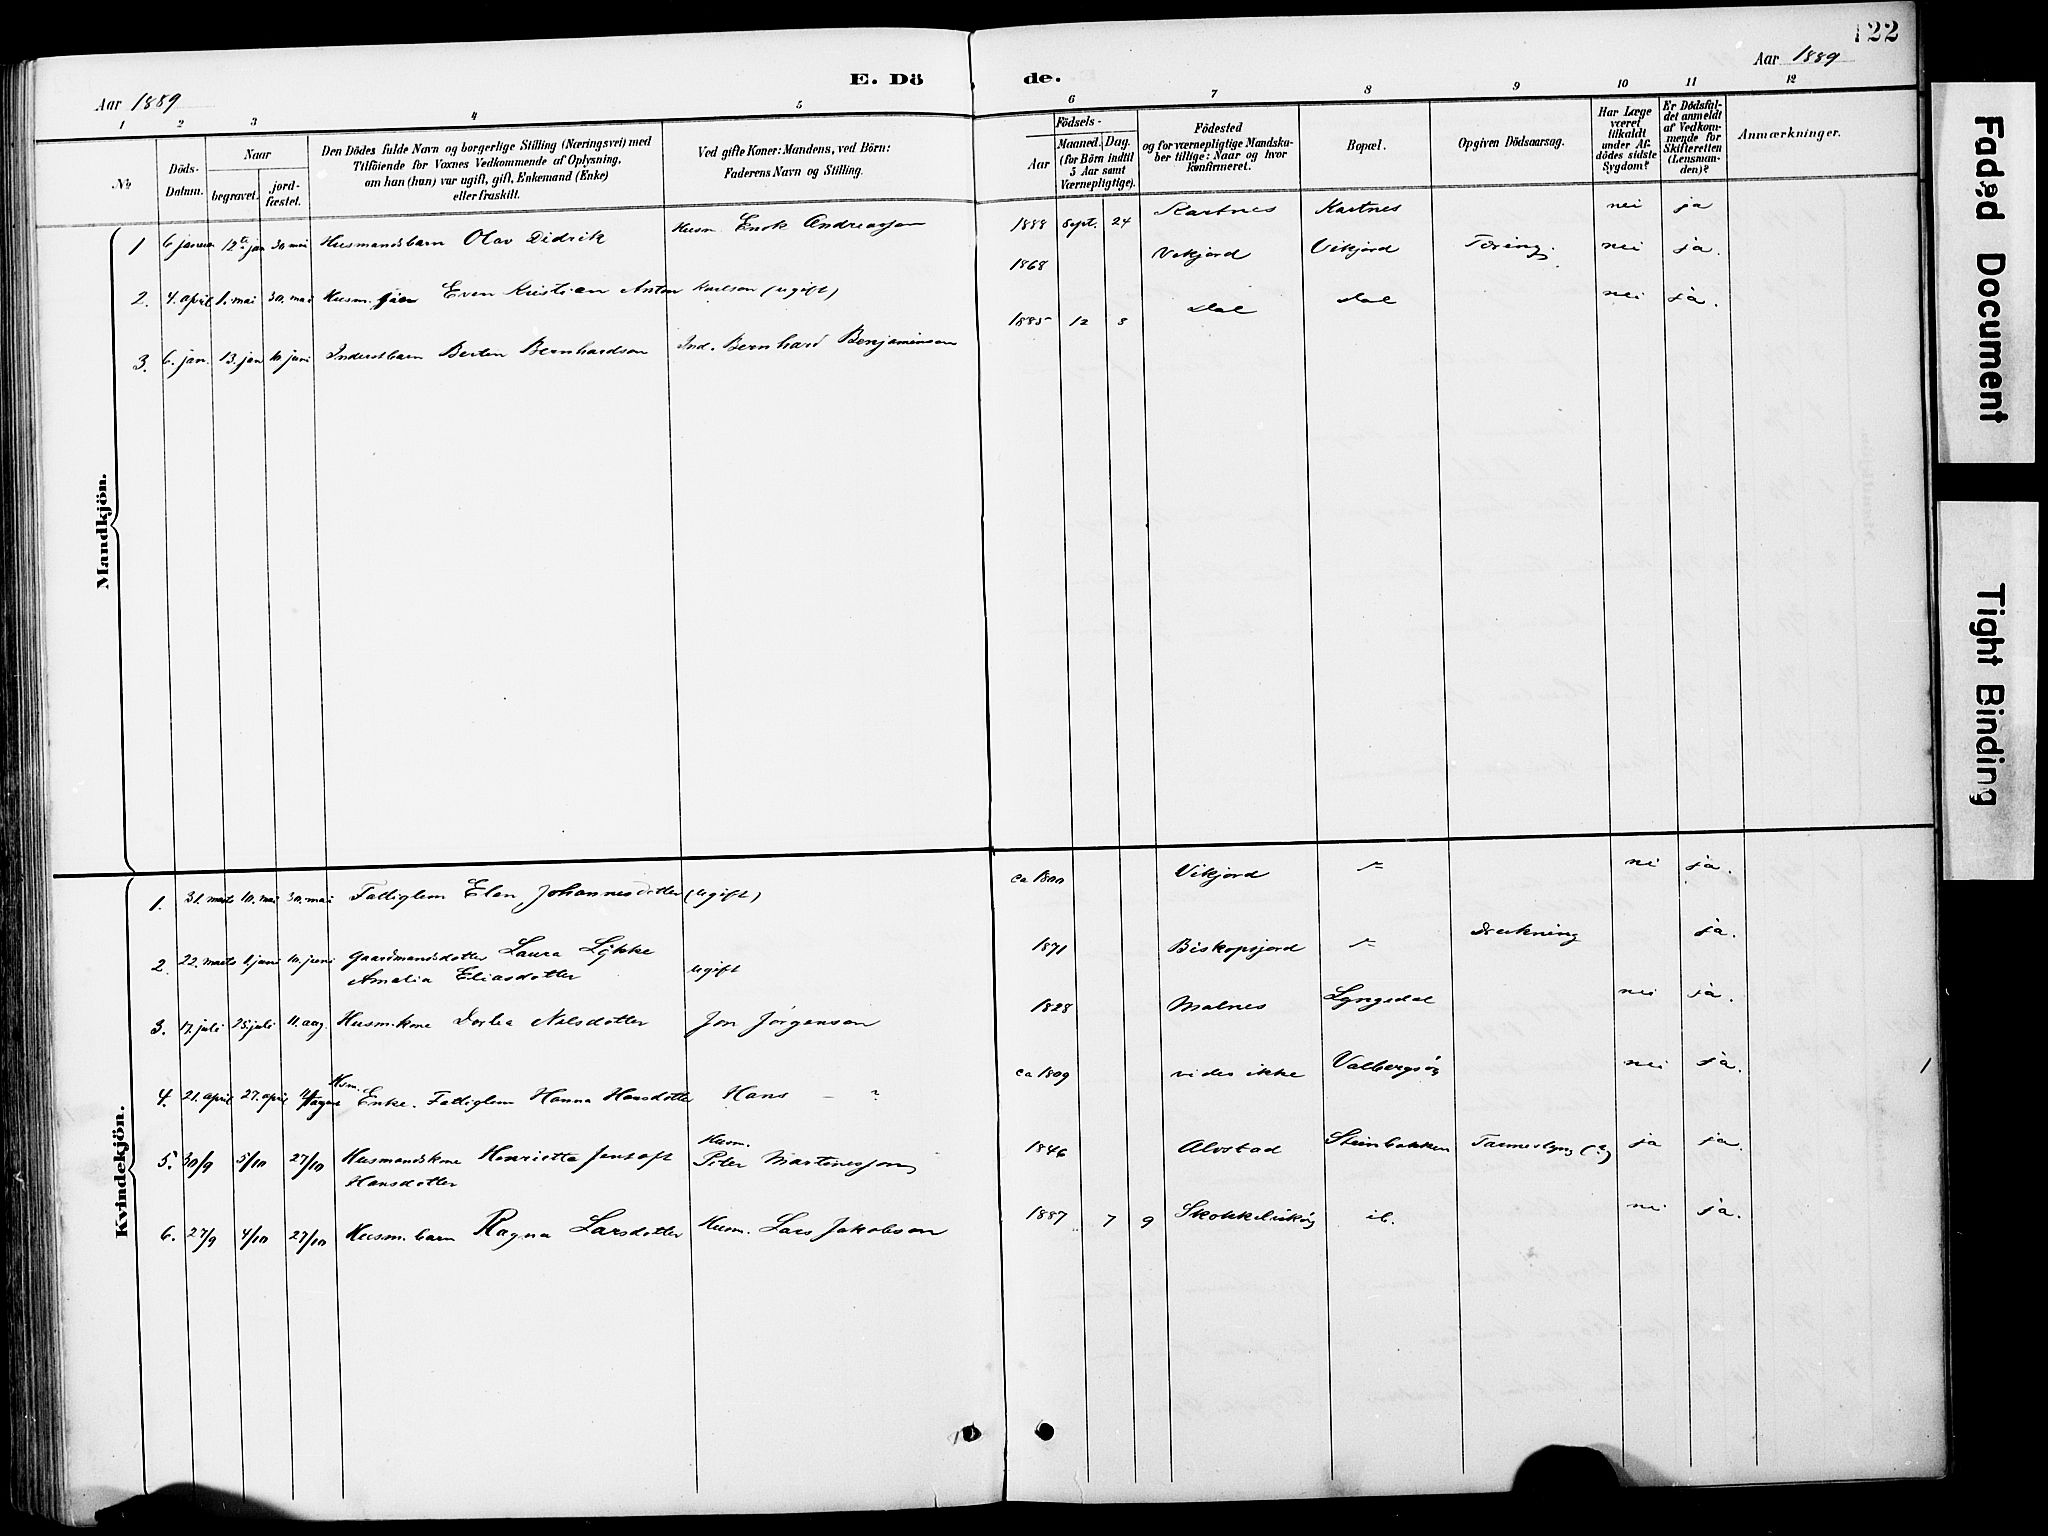 122
E. Dö de.
Aar 1889
Aar 1889
1 2 3 4 5 6 7 8 9 10 11 12
No
Döds-Datum.
Naar
begravet.
jord-fæstet.
Den Dödes fulde Navn og borgerlige Stilling (Næringsvei) med
Tilföiende for Voxnes Vedkommende af Oplysning,
om han (hun) var ugift, gift, Enkemand (Enke)
eller fraskilt.
Ved gifte Koner: Mandens, ved Börn:
Faderens Navn og Stilling.
Födsels-
Aar
Maaned. Dag.
(for Börn indtil
5 Aar samt
Værnepligtige).
Födested
og for værnepligtige Mandska-
ber tillige: Naar og hvor
konfirmeret.
Bopæl.
Opgiven Dödsaarsag.
Har Læge
været
tilkaldt
under Af-
dödes sidste
Sygdom?
Er Dödsfal-
det anmeldt
af Vedkom-
mende for
Skifteretten
(Lensman-
den)?
Anmærkninger.
Mandkjön.
1 6 januar 12te jan 30 mai Husmandsbarn Olav Didrik Husm. Enok Andreassen 1888 Sept. 24 Kartnes Kartnes nei ja
2. 4. april 1. mai 30. mai Husm. Even Kristian Anton Karlson (ugift) 1868 Vikjord Vikjord Tæring. nei ja.
3. 6. jan. 13. jan 10 juni Inderstbarn Berten Bernhardson Ind. Bernhard Benjaminson 1885 12 8 Dal Dal nei ja.
Kvindekjön.
1. 31. marts 10. mai 30. mai Fattiglem Elen Johannesdotter (ugift) ca 1800 Vikjord nei ja.
2. 22. marts 1. juni 10. juni Gaardmandsdotter Laura Lykke
Amalia Eliasdotter ugift 1871 Biskopsjord Drukning ja.
3. 17. juli 25. juli 11. aug Husm.kone Dorlea Nilsdotter Jon Jørgenson 1828 Malnes Lyngedal nei ja.
4. 21. april 27. april Husm. Enke. Fattiglem Hanna Hansdotter Hans – ? ca 1809 vides ikke Valbergsøy nei ja.
5. 30/9 5/10 27/10 Husmandskone Henrietta Jentoft
Hansdotter Husm.
Peter Martinessong 1846 Alvstad Steinbakken (?) ja ja.
6. 27/9 4/10 27/10 Husm. barn Ragna Larsdotter Husm. Lars Jakobson 1887 7 9 ib. nei ja.
Faded Document
Tight Binding